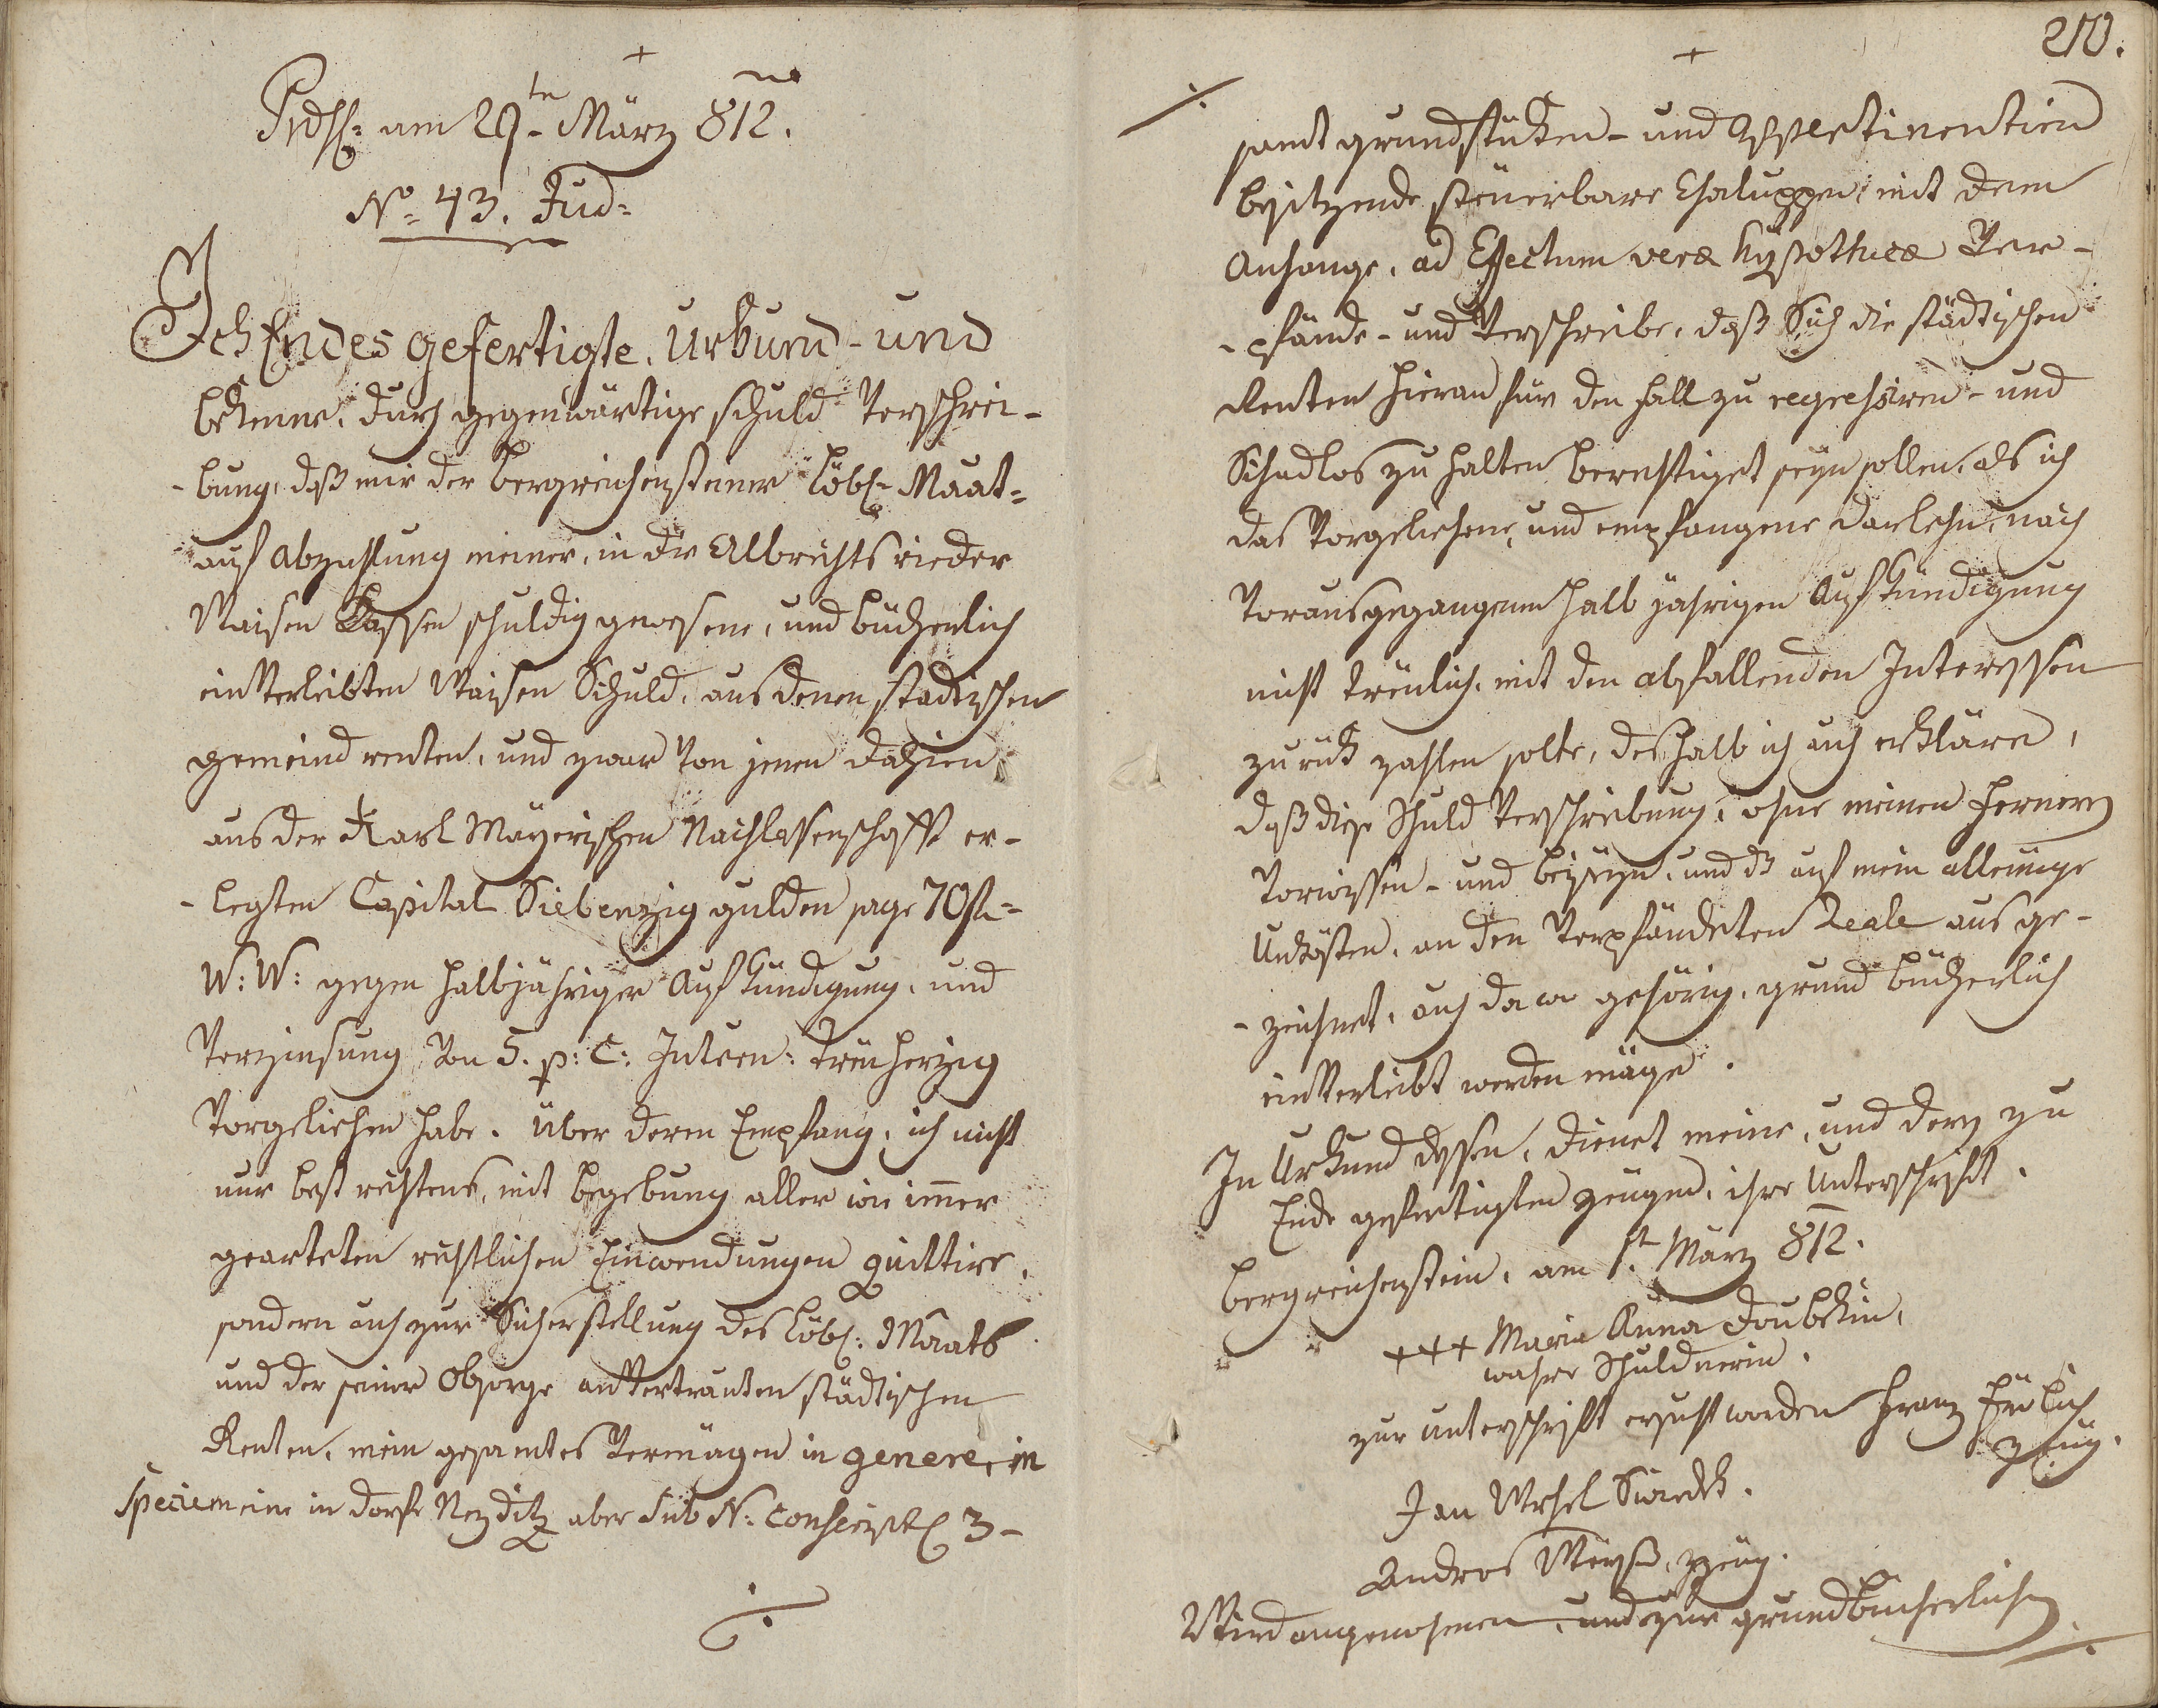 Prds: am 29ten März 812.
No: 43. Jud:
Ich Endes gefertigte, Urkund- und
bekenne, durch gegenwärtige schuld Verschrei-
-bung, daß mir der Bergreichensteiner Löbl. Maat=
auf abzahlung meiner, in der Albrechtsrieder
Waisen Kassen schuldig gewesene, und bücherlich
einverleibten Waisen Schuld, aus denen stadtischen
gemeind renten, und zwar von jenen dahien
aus der Karl Mayerischen Nachlassenschaft er-
-legten Capital Siebenzig gulden sage 70 fl=
W: W: gegen halbjähriger Aufkündigung, und
Verzinsung Von 5. p: C: Intren: treüherzig
Vorgeliehen habe. Über deren Empfang, ich nicht
nur best rechtens, mit begebung aller wie immer
gearteten rechtlichen Einwendungen quittire,
sondern auch zur Sicherstellung des Löbl: Maats
und der seiner Obsorge anvertrauten städtischen
Renten, mein gesamtes Vermögen in genere, in
specie meine in dorfe Nezditz aber sub N: Conscript 3-
270.
samt grundstüken- und Appertinentien
besitzende steüerbare Chaluppen, mit dem
Anhange, ad Effectum veræ hypothecæ Ver-
-pfände- und Verschreibe, daß Sich die städtischen
Renten hieran für den fall zu regressiren- und
Schadlos zu halten berechtiget seyn sollen, als ich
das Vorgeliehene, und empfangene darlehn, nach
Vorausgegangenen halb jährigen Aufkündigung
nicht treulich, mit den abfallenden Interessen
zurük zahlen solte, deshalb ich auch erkläre,
daß diese Schuld Verschreibung, ohne meinen fernern
Vorwissen- und beyseyn, und zwar auf mein alleinige
Unkösten, an den Verpfändeten Reale ausge-
-zeichnet, auch da wo gehörig, grund bücherlich
einverleibt werden möge.
In Urkund dessen, dienet meine, und deren zu
Ende gefertigten zeügen, ihre Unterschrift.
Bergreichenstein, am 1t. März 812.
+++ Maria Anna Doubkin,
wahre Schuldnerin.
zur unterschrift ersucht worden Franz Frölich
zeüg.
Jan Wrhel Swiedk.
Andreas zeüg.
Wird angenohmen, und zur grundbücherlichen